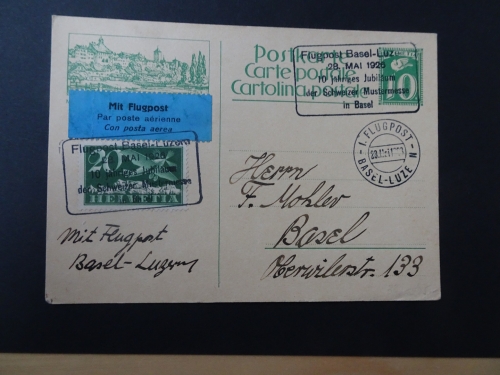 Postkarte
Carte postale
Cartolina postale
10
Flugpost Basel-Luzern
28. MAI 1926
10 jähriges Jubiläum
der Schweizer Mustermesse
in Basel
Mit Flugpost
Par poste aérienne
Con posta aerea
Flugpost Basel-Luzern
MAI 1926
10 jähriges Jubiläum
der Schweizer Mustermesse
20
HELVETIA
I. FLUGPOST
BASEL-LUZE N
Herrn
F. Mohler
Basel
Oberwilerstr. 133
Mit Flugpost
Basel-Luzern